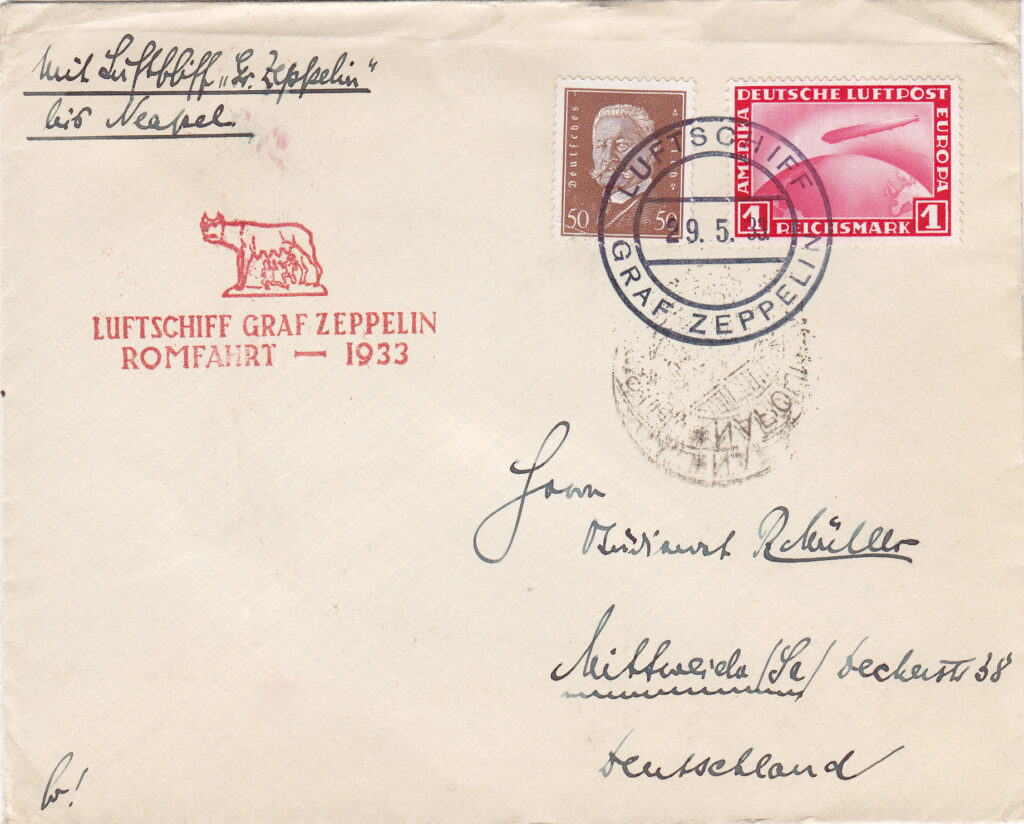 Mit Luftschiff „Gr. Zeppelin“
bis Neapel.
Deutsches Reich
50 50
DEUTSCHE LUFTPOST
AMERIKA
EUROPA
1 REICHSMARK 1
LUFTSCHIFF
29. 5. 33.
GRAF ZEPPELIN
LUFTSCHIFF GRAF ZEPPELIN
ROMFAHRT — 1933
Herrn
Studienrat R. Müller
Mittweida /Sa/ Deckerstr 38
Deutschland